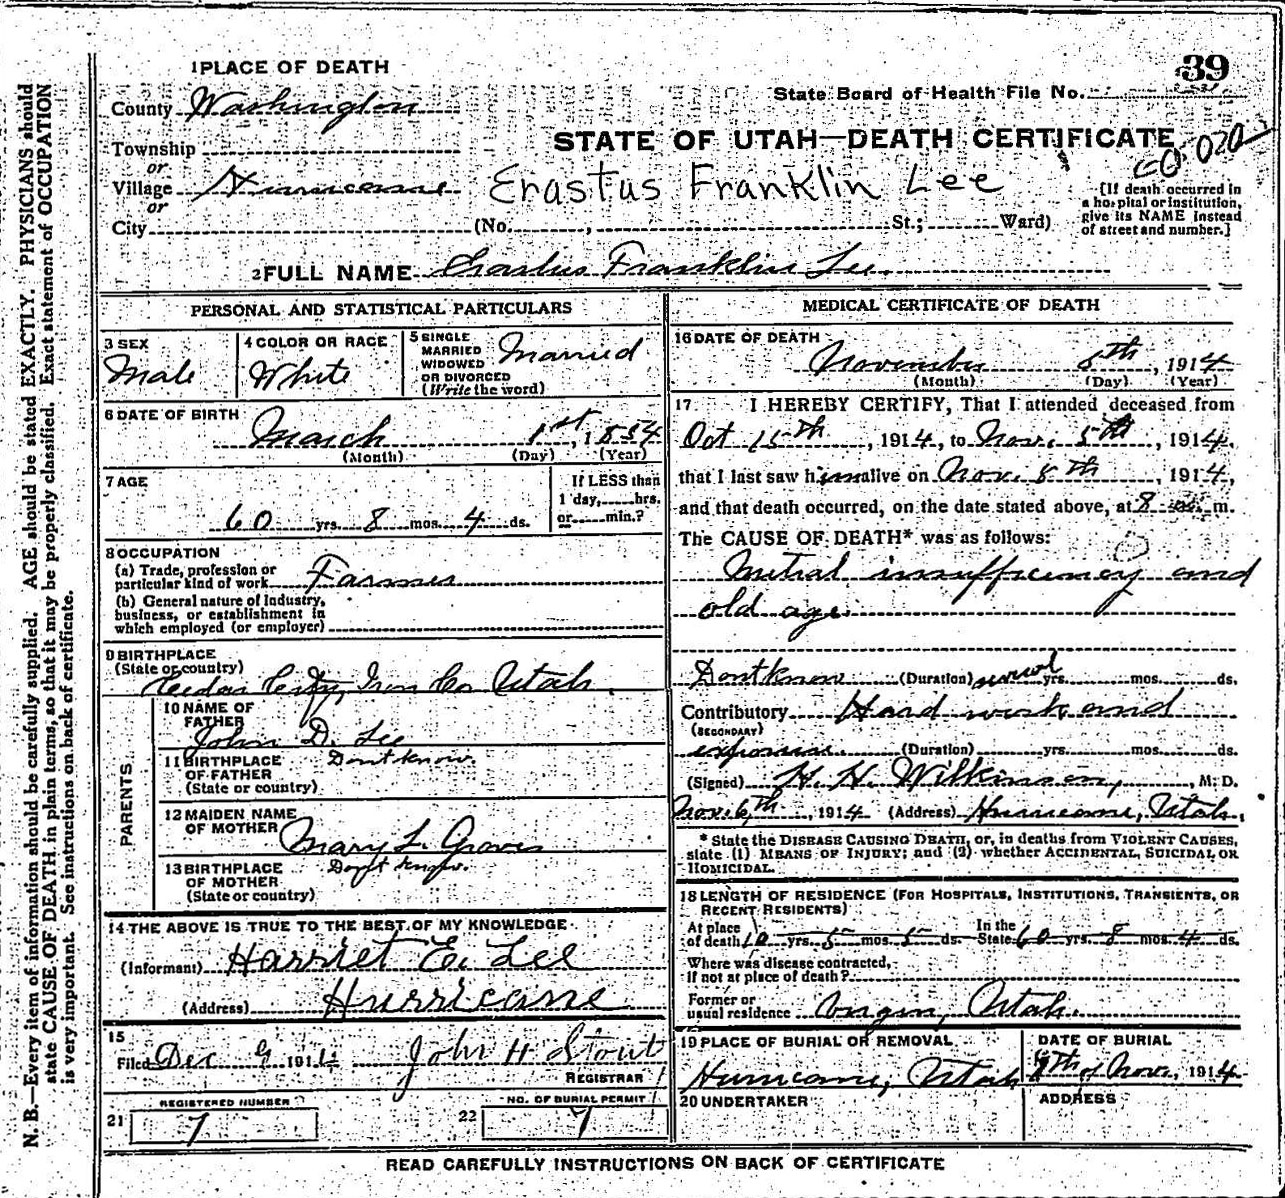 39
1 PLACE OF DEATH
County Washington
State Board of Health File No.
Township
STATE OF UTAH—DEATH CERTIFICATE
or
Village Hurricane
Erastus Franklin Lee
[If death occurred in
a hospital or institution,
give its NAME instead
of street and number.]
or
City (No. , St.; Ward)
2 FULL NAME Erastus Franklin Lee.
PERSONAL AND STATISTICAL PARTICULARS
3 SEX
Male
4 COLOR OR RACE
White
5 SINGLE
MARRIED
WIDOWED
OR DIVORCED
(Write the word)
Married
6 DATE OF BIRTH
March 1st, 1854
(Month) (Day) (Year)
7 AGE
60 yrs. 8 mos. 4 ds.
If LESS than
1 day, hrs.
or min.?
8 OCCUPATION
(a) Trade, profession or
particular kind of work Farmer
(b) General nature of Industry,
business, or establishment in
which employed (or employer)
9 BIRTHPLACE
(State or country)
Cedar City, Iron Co Utah.
PARENTS
10 NAME OF
FATHER
John D. Lee
11 BIRTHPLACE
OF FATHER
(State or country)
Dont know.
12 MAIDEN NAME
OF MOTHER
Mary L. Groves
13 BIRTHPLACE
OF MOTHER
(State or country)
Don't know.
14 THE ABOVE IS TRUE TO THE BEST OF MY KNOWLEDGE
(Informant) Harriet E. Lee
(Address) Hurricane
15
Filed Dec 9 191 John H Stout
REGISTRAR
REGISTERED NUMBER
21 7
NO. OF BURIAL PERMIT
22 7
MEDICAL CERTIFICATE OF DEATH
16 DATE OF DEATH
November 5th, 1914
(Month) (Day) (Year)
17. I HEREBY CERTIFY, That I attended deceased from
Oct 15th, 1914, to Nov. 5th, 1914,
that I last saw him alive on Nov. 5th, 1914,
and that death occurred, on the date stated above, at 8 m.
The CAUSE OF DEATH* was as follows:
Mitral insufficiency and
old age.
Dont know (Duration) yrs. mos. ds.
Contributory Hard work and
(SECONDARY)
exposure. (Duration) yrs. mos. ds.
(Signed) H. H. Wilkinson, M. D.
Nov. 6th, 1914 (Address) Hurricane, Utah.
* State the DISEASE CAUSING DEATH, or, in deaths from VIOLENT CAUSES,
state (1) MEANS OF INJURY; and (2) whether ACCIDENTAL, SUICIDAL OR
HOMICIDAL.
18 LENGTH OF RESIDENCE (FOR HOSPITALS, INSTITUTIONS, TRANSIENTS, OR
RECENT RESIDENTS)
At place
of death 10 yrs. 5 mos. 5 ds.
In the
State 60 yrs. 8 mos. 4 ds.
Where was disease contracted,
if not at place of death?
Former or
usual residence Virgin, Utah.
19 PLACE OF BURIAL OR REMOVAL
Hurricane, Utah
DATE OF BURIAL
of Nov., 1914
20 UNDERTAKER
ADDRESS
READ CAREFULLY INSTRUCTIONS ON BACK OF CERTIFICATE
N. B.—Every item of information should be carefully supplied. AGE should be stated EXACTLY. PHYSICIANS should
state CAUSE OF DEATH in plain terms, so that it may be properly classified. Exact statement of OCCUPATION
is very important. See instructions on back of certificate.